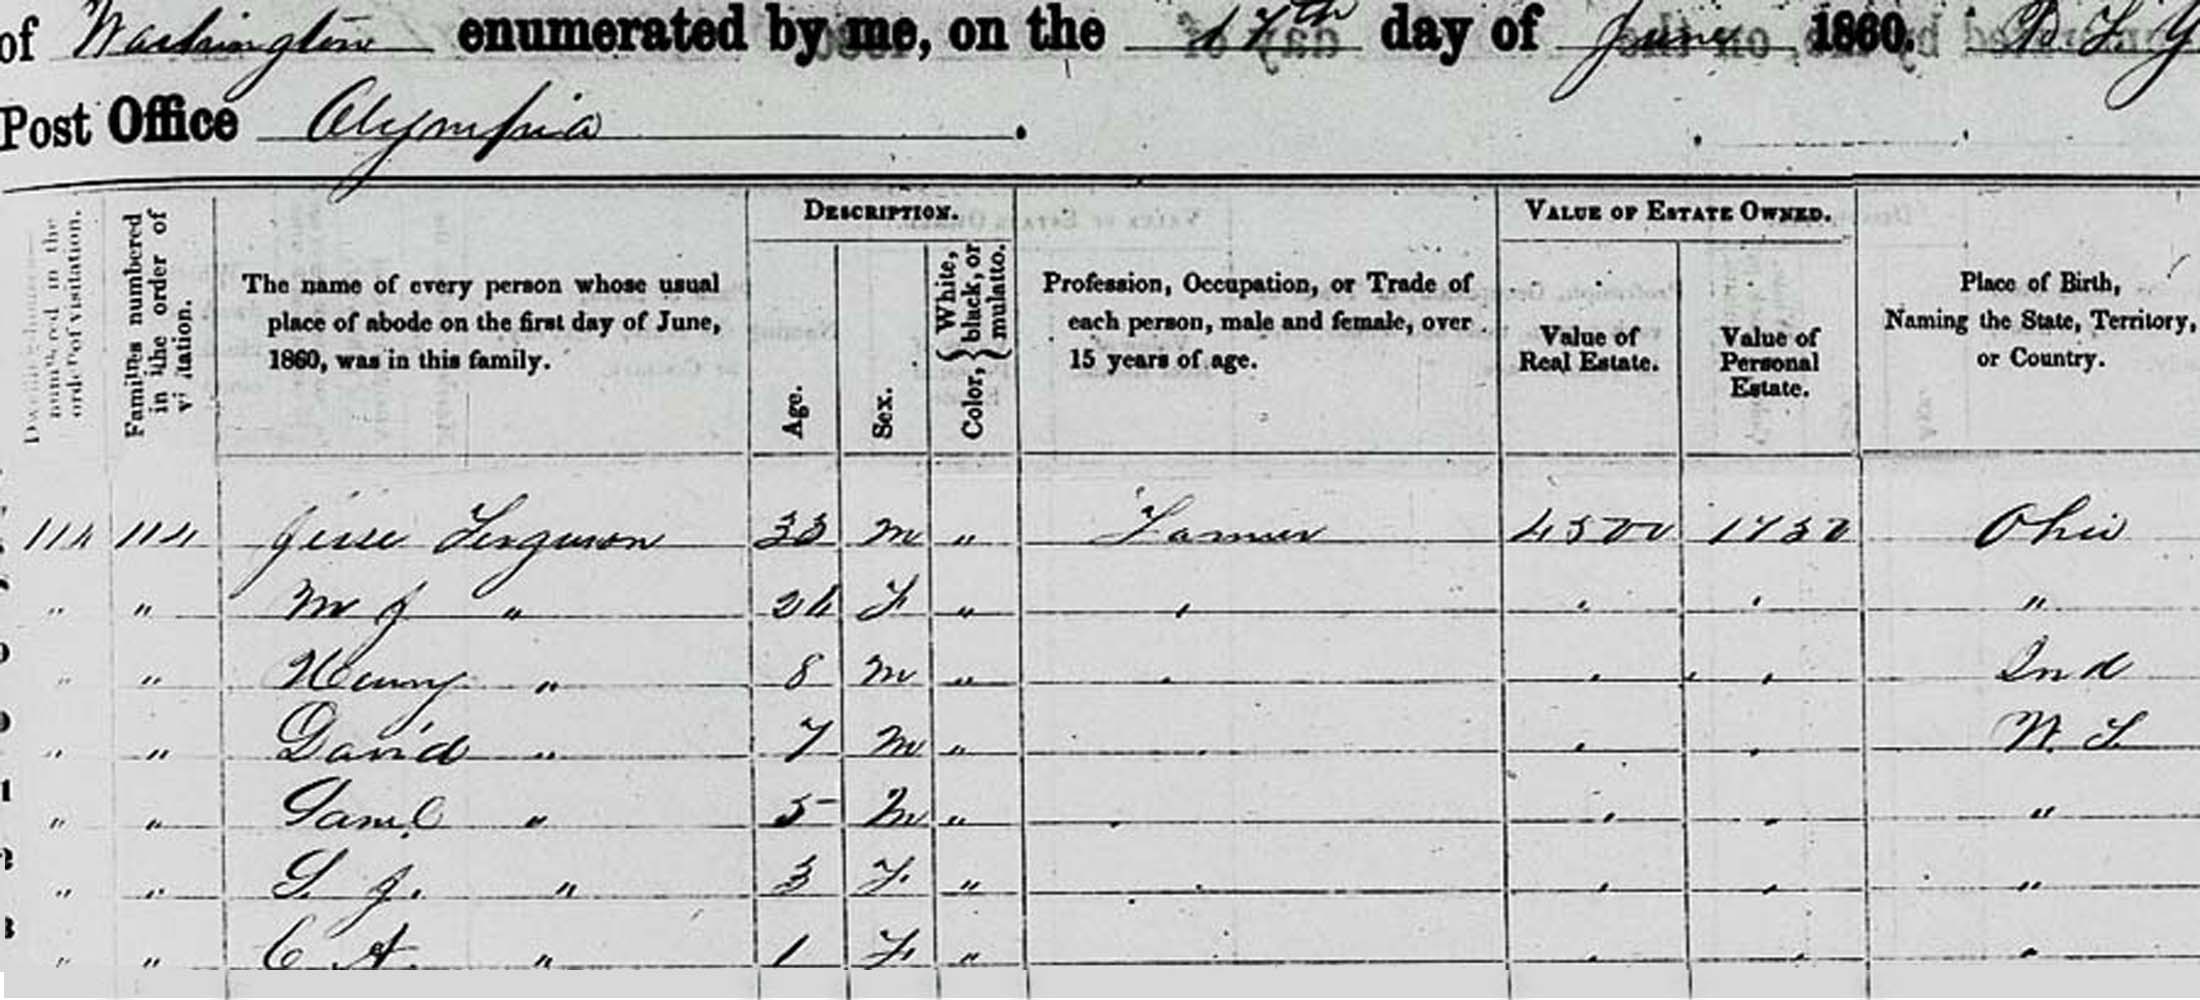 of Washington enumerated by me, on the 17th day of June 1860.
Post Office Olympia.
DESCRIPTION. VALUE OF ESTATE OWNED.
Dwelling-houses numbered in the order of visitation.
Families numbered in the order of visitation.
The name of every person whose usual place of abode on the first day of June, 1860, was in this family.
Age.
Sex.
Color, { White, black, or mulatto.
Profession, Occupation, or Trade of each person, male and female, over 15 years of age.
Value of Real Estate.
Value of Personal Estate.
Place of Birth, Naming the State, Territory, or Country.
114 114 Jesse Ferguson 33 M " Farmer 4500 Ohio
" " M J " F " "
" " Henry " 8 M " Ind
" " David " 7 M " W. T.
" " Saml " 5 M " "
" " S. J. " 3 F. " "
" " C A. " 1 F. " "